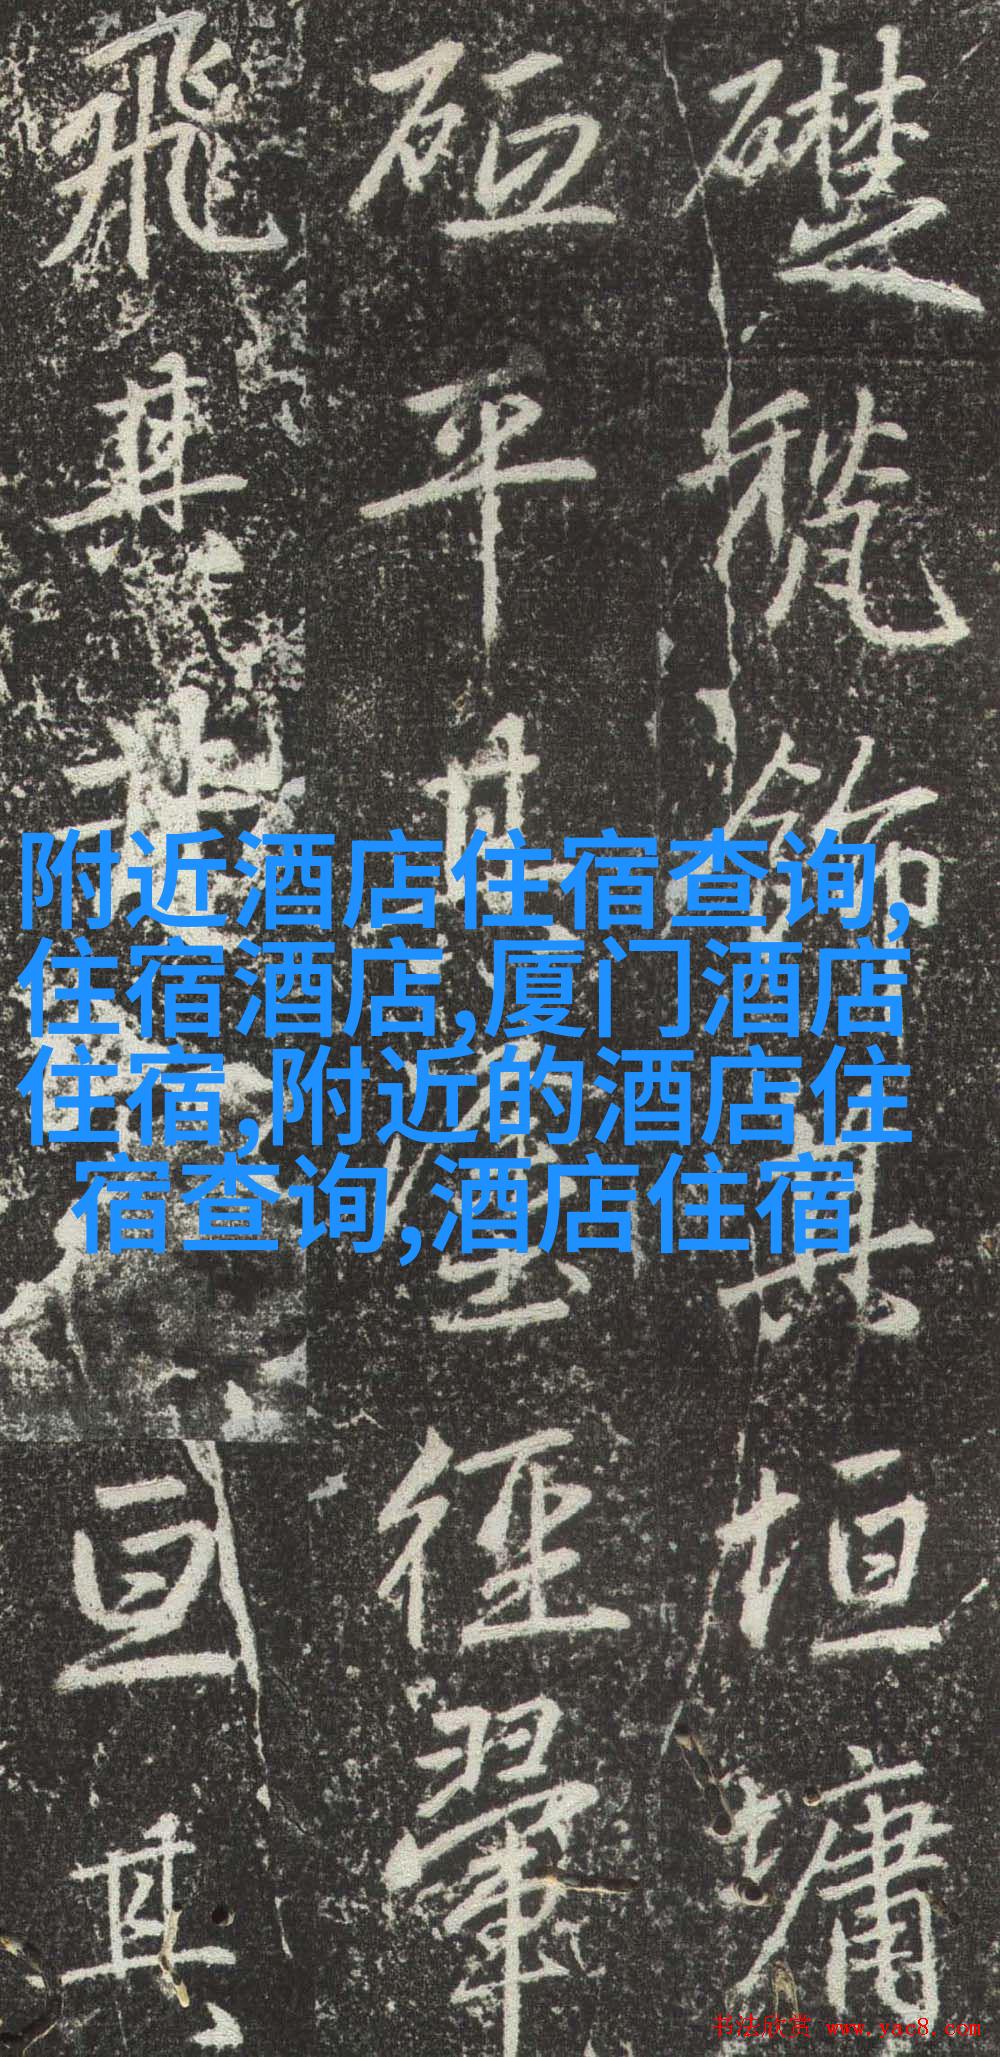 礎飾其垣墉
砥平其徑翬
飛其亘其
附近酒店住宿查询,
住宿酒店,厦门酒店
住宿,附近的酒店住
宿查询,酒店住宿
书法欣赏 www.yac8.com